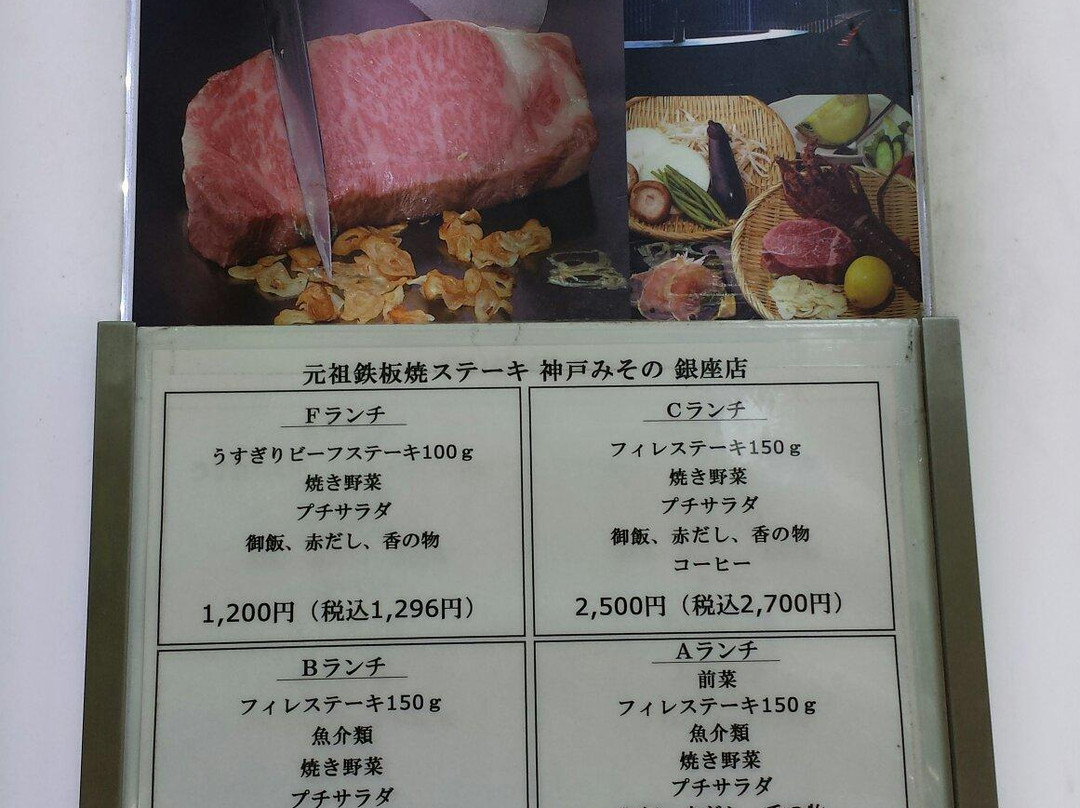 元祖鉄板焼ステーキ 神戸みその 銀座店
Fランチ
うすぎりビーフステーキ100g
焼き野菜
プチサラダ
御飯、赤だし、香の物
1,200円（税込1,296円）
Cランチ
フィレステーキ150g
焼き野菜
プチサラダ
御飯、赤だし、香の物
コーヒー
2,500円（税込2,700円）
Bランチ
フィレステーキ150g
魚介類
焼き野菜
プチサラダ
Aランチ
前菜
フィレステーキ150g
魚介類
焼き野菜
プチサラダ